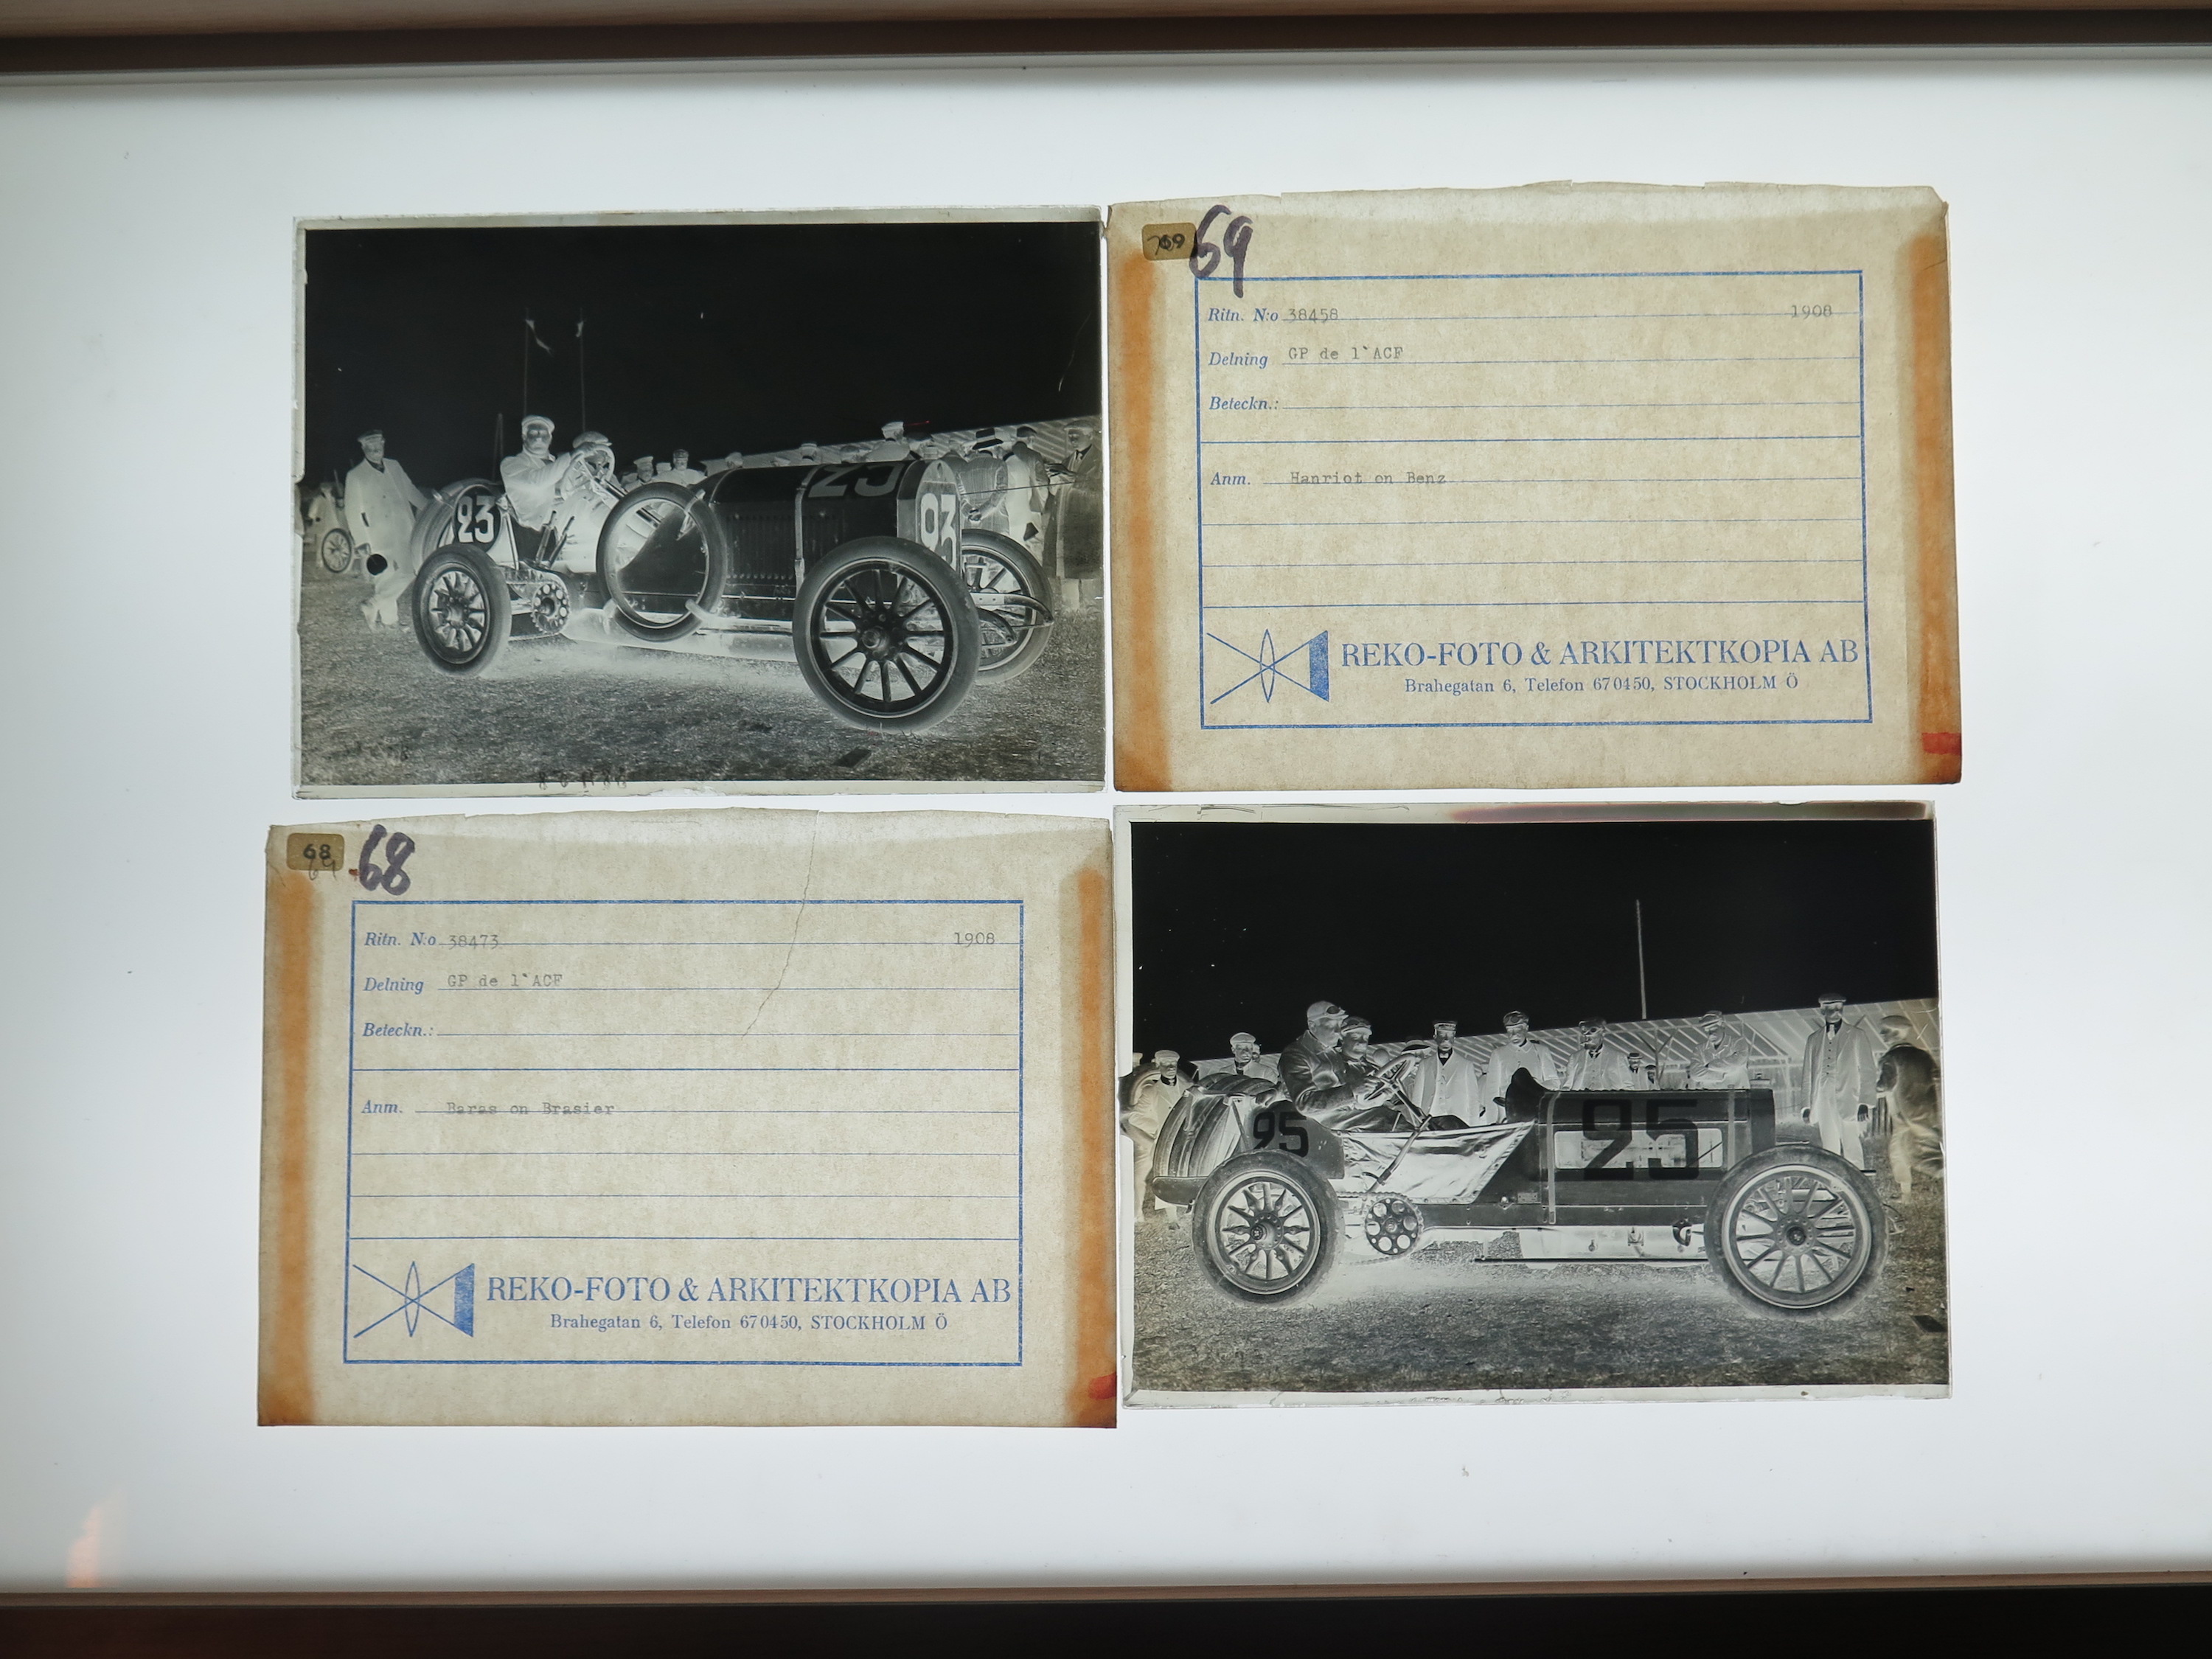 23
23
69
69
Ritn. N:o 38458 1908
Delning GP de l`ACF
Beteckn.:
Anm. Hanriot on Benz
REKO-FOTO & ARKITEKTKOPIA AB
Brahegatan 6, Telefon 670450, STOCKHOLM Ö
68
68
Ritn. N:o 38473 1908
Delning GP de l`ACF
Beteckn.:
Anm. Baras on Brasier
REKO-FOTO & ARKITEKTKOPIA AB
Brahegatan 6, Telefon 670450, STOCKHOLM Ö
25
25